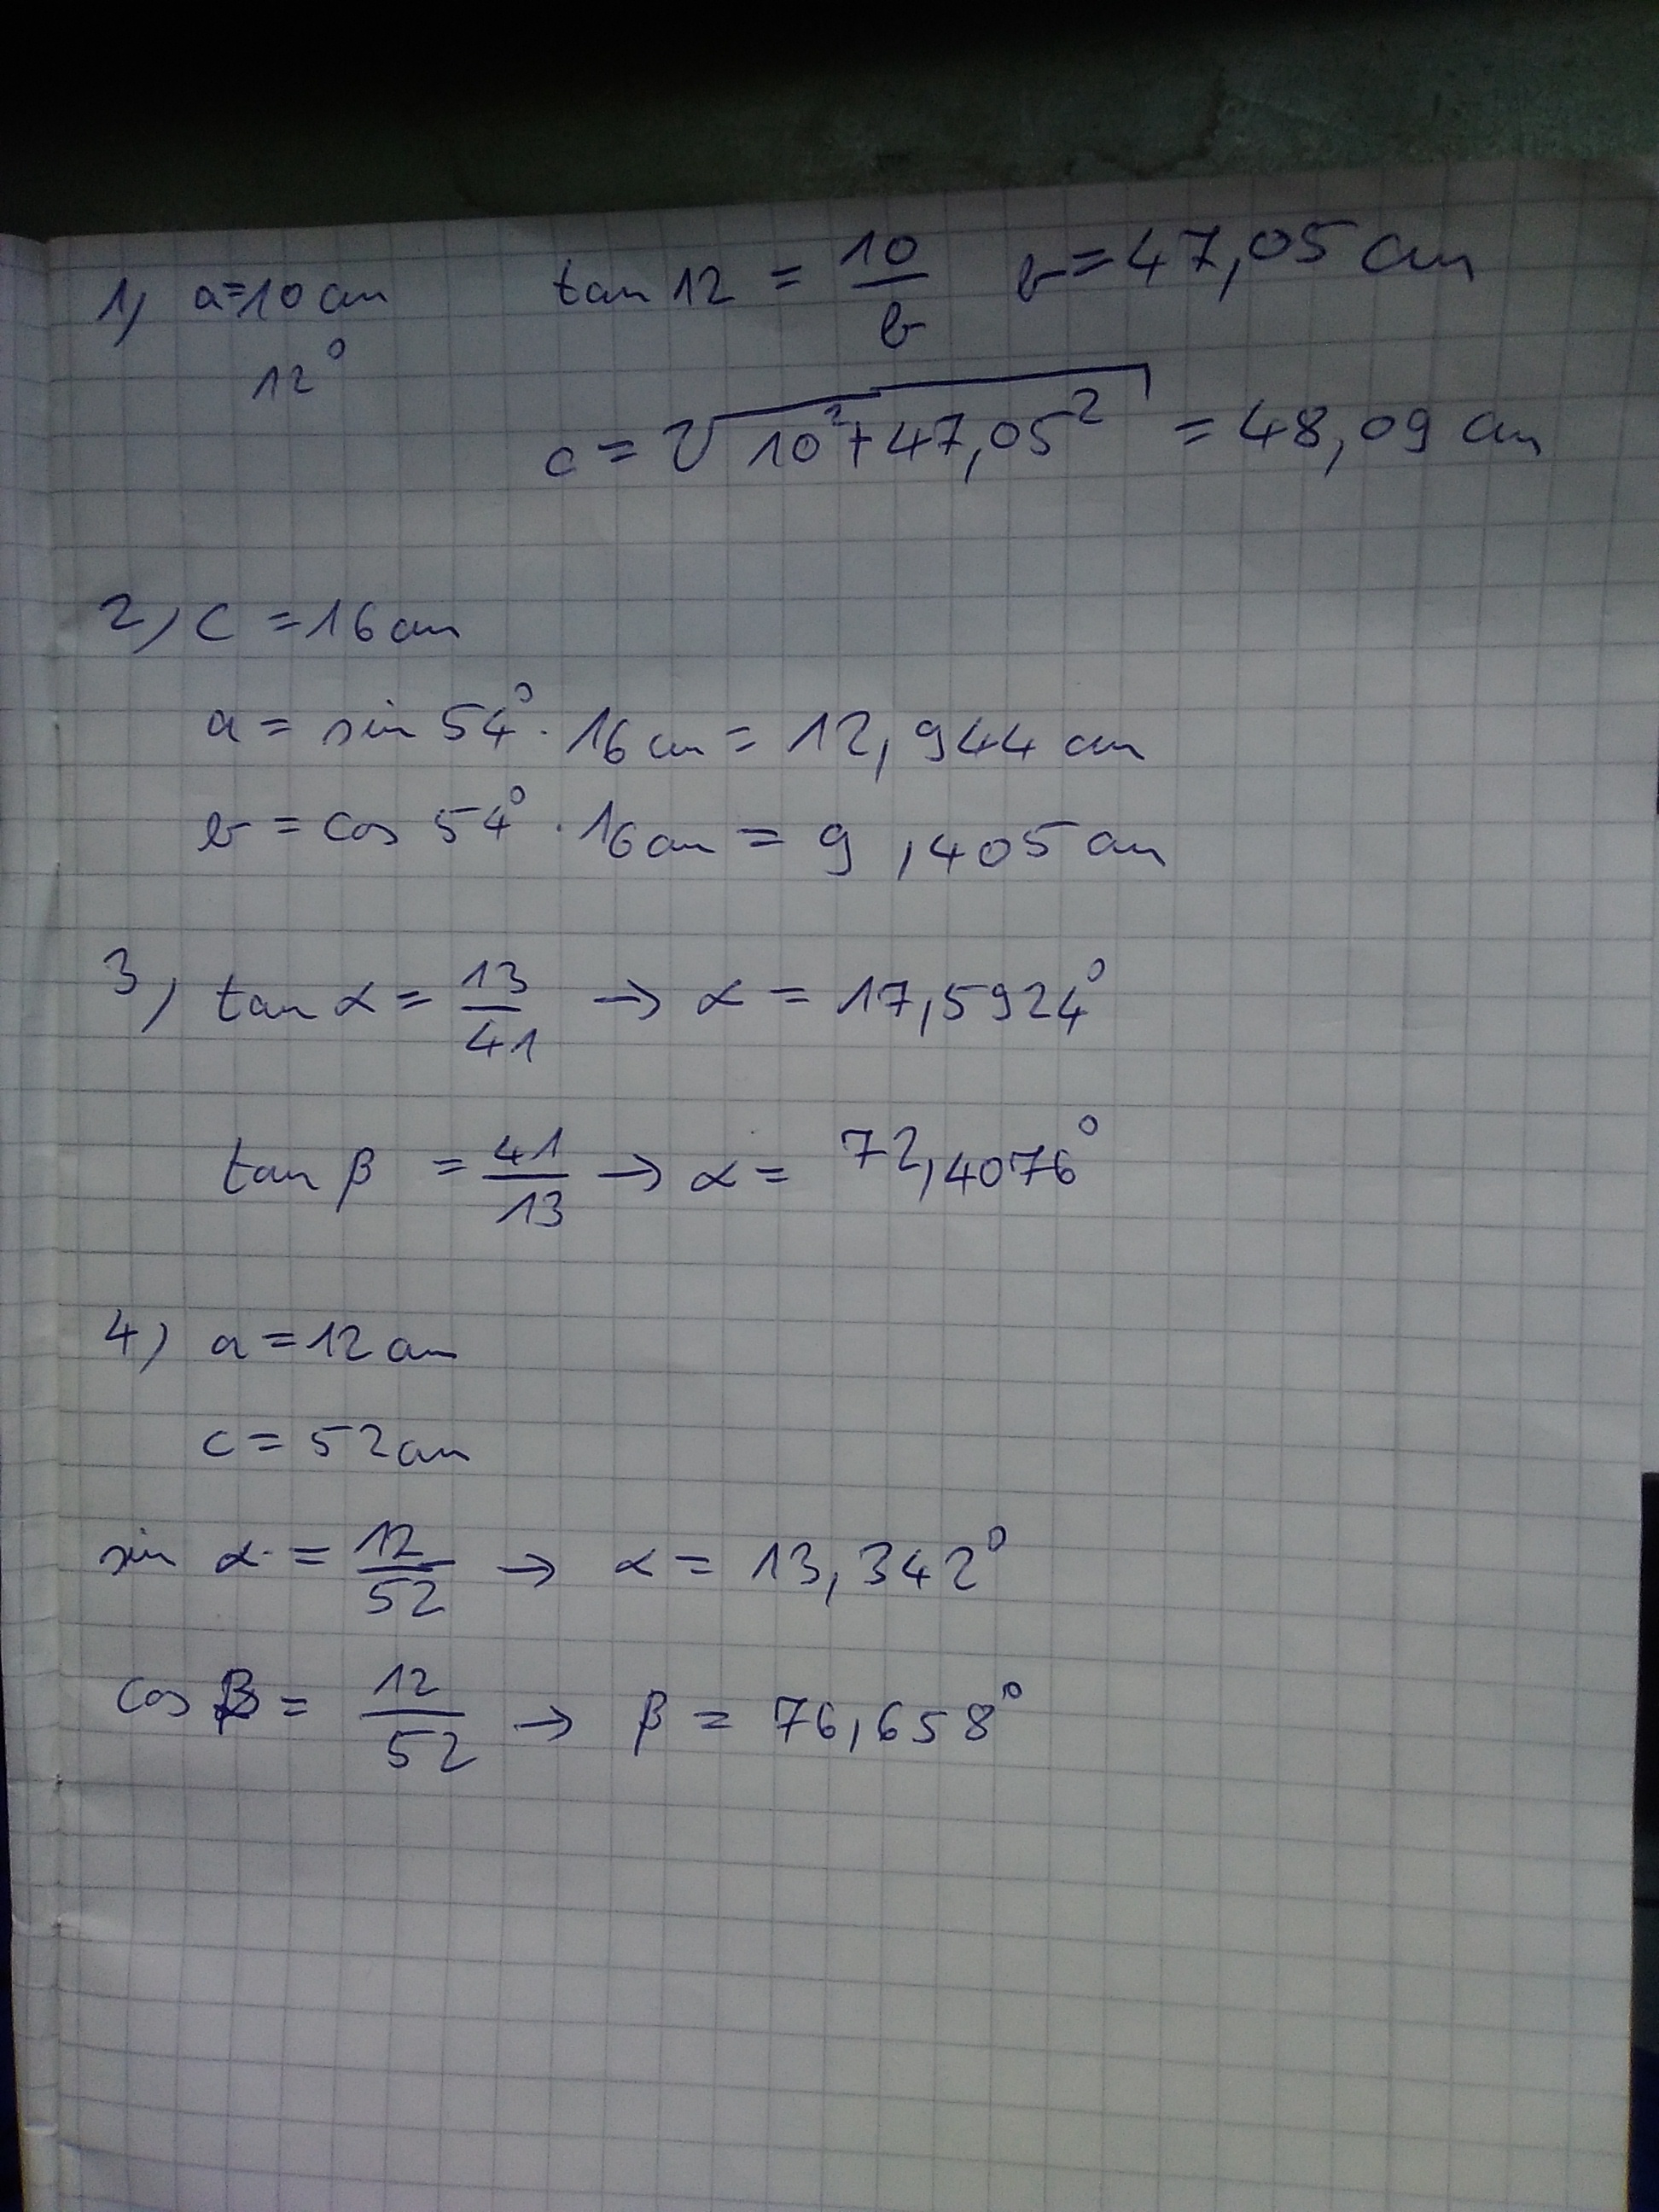 1) a=10 cm tan 12 = 10/b b=47,05 cm
12°
c = √10²+47,05² = 48,09 cm
2) c = 16 cm
a = sin 54° · 16 cm = 12,944 cm
b = cos 54° · 16 cm = 9,405 cm
3) tan α = 13/41 → α = 17,5924°
tan β = 41/13 → α = 72,4076°
4) a = 12 cm
c = 52 cm
sin α = 12/52 → α = 13,342°
cos β = 12/52 → β = 76,658°